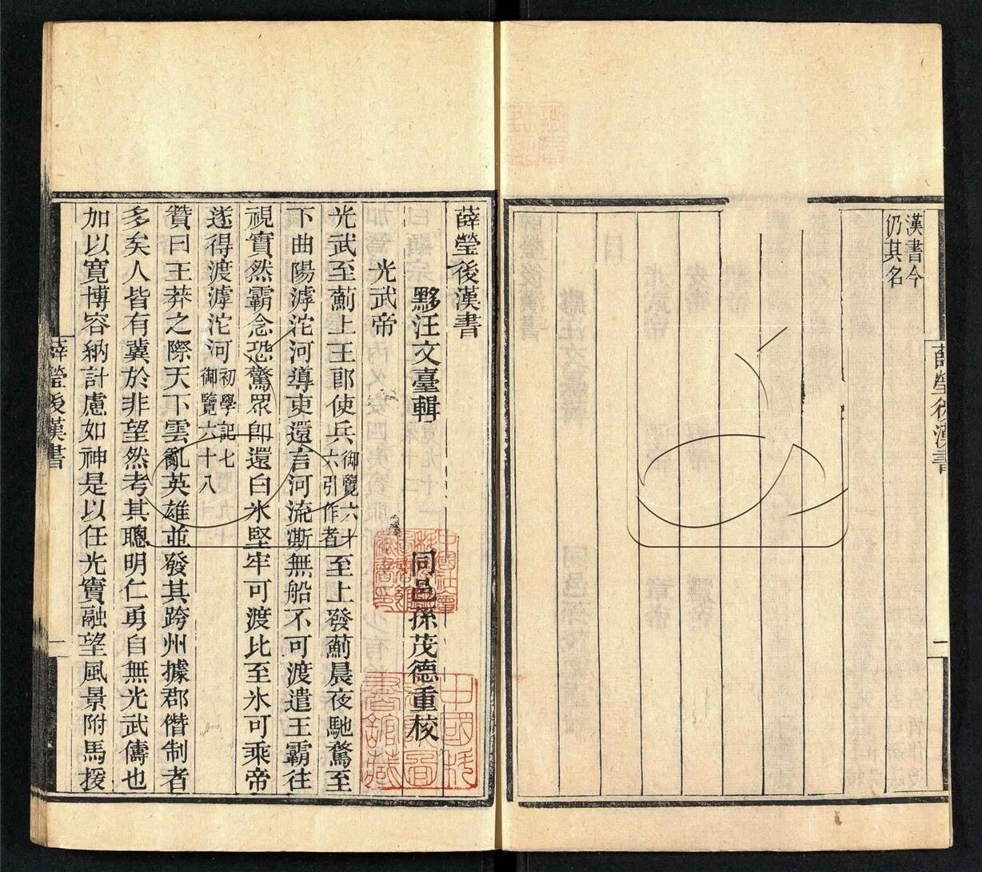 漢書今
仍其名
薛瑩後漢書
一
薛瑩後漢書
黟汪文臺輯
同邑孫茂德重校
光武帝
光武至薊上王郎使兵御覽六十六引作者至上發薊晨夜馳騖至
下曲陽滹沱河導吏還言河流澌無船不可渡遣王霸往
視實然霸念恐驚眾卽還白氷堅牢可渡比至氷可乘帝
遂得渡滹沱河初學記七御覽六十八
贊曰王莽之際天下雲亂英雄並發其跨州據郡僭制者
多矣人皆有冀於非望然考其聰明仁勇自無光武儔也
加以寬博容納計慮如神是以任光竇融望風景附馬援
薛瑩後漢書
一